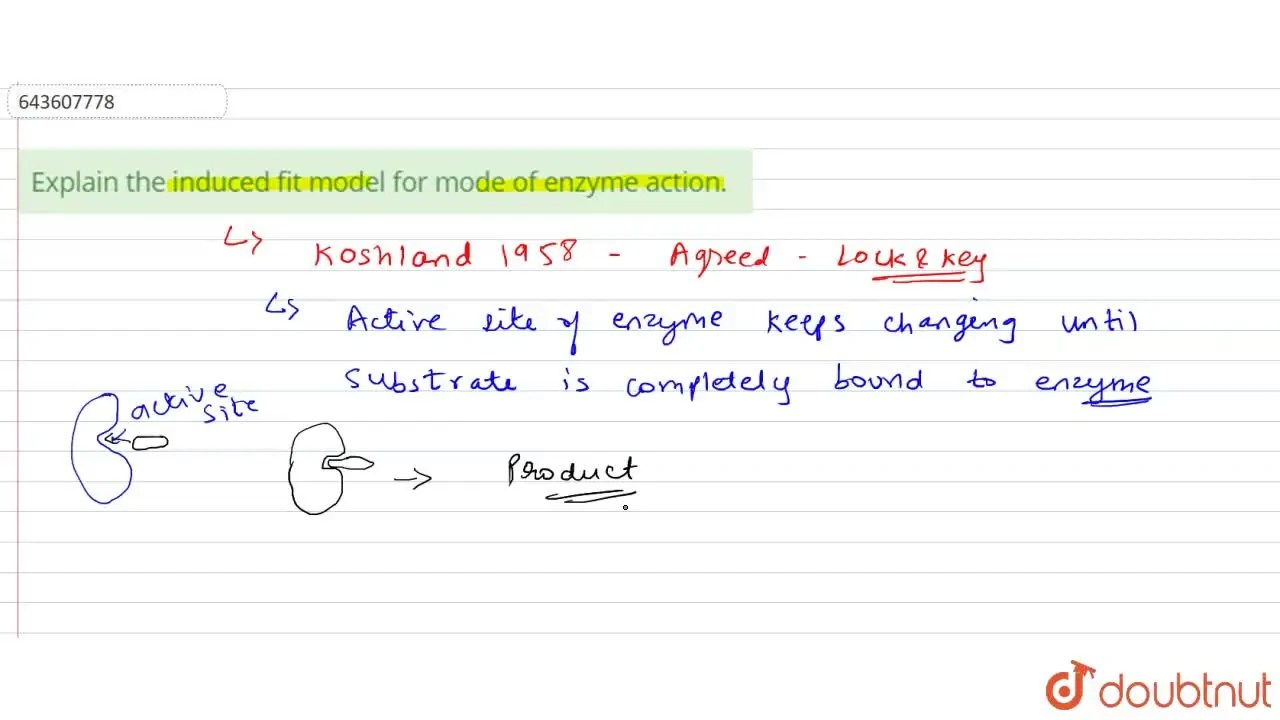 643607778
Explain the induced fit model for mode of enzyme action.
Koshland 1958 - Agreed - Lock & key
Active site of enzyme keeps changing until
substrate is completely bound to enzyme
active
site
Product
doubtnut